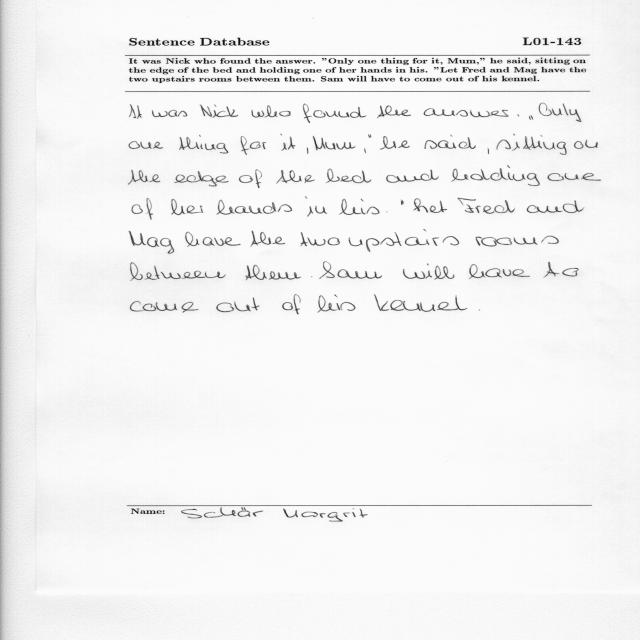 Sentence Database L01-143
It was Nick who found the answer. "Only one thing for it, Mum," he said, sitting on
the edge of the bed and holding one of her hands in his. "Let Fred and Mag have the
two upstairs rooms between them. Sam will have to come out of his kennel.
It was Nick who found the answer. „Only
one thing for it, Mum," he said, sitting on
the edge of the bed and holding one
of her hands in his. "Let Fred and
Mag have the two upstairs rooms
between them. Sam will have to
come out of his kennel.
Name: Schär Margrit